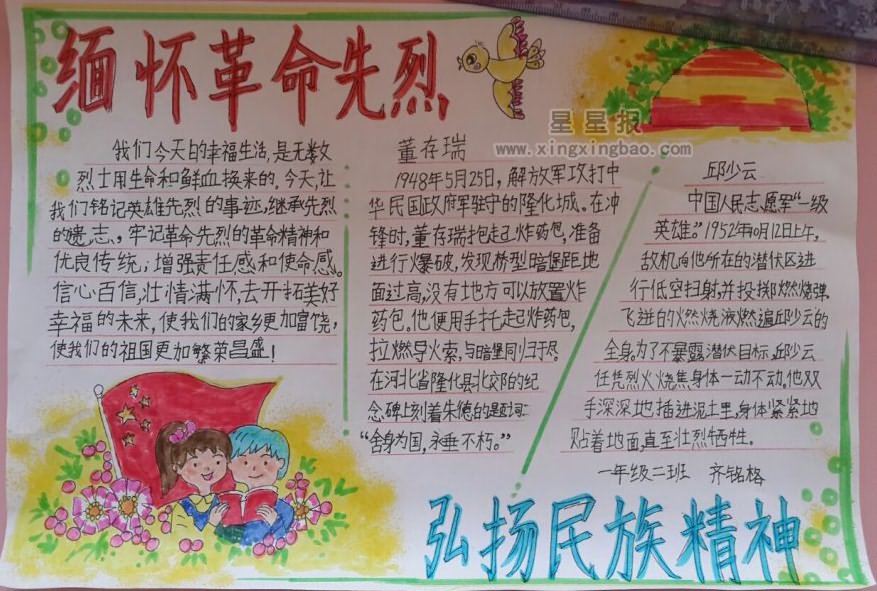 缅怀革命先烈
星星报
www.xingxingbao.com
我们今天的幸福生活,是无数
烈士用生命和鲜血换来的。今天,让
我们铭记英雄先烈的事迹,继承先烈
的遗志、牢记革命先烈的革命精神和
优良传统;增强责任感和使命感。
信心百信,壮情满怀,去开拓美好
幸福的未来,使我们的家乡更加富饶,
使我们的祖国更加繁荣昌盛!
董存瑞
1948年5月25日,解放军攻打中
华民国政府军驻守的隆化城。在冲
锋时,董存瑞抱起炸药包,准备
进行爆破,发现桥型暗堡距地
面过高,没有地方可以放置炸
药包。他便用手托起炸药包,
拉燃导火索,与暗堡同归于尽。
在河北省隆化县北郊的纪
念碑上刻着朱德的题词:
“舍身为国,永垂不朽。”
邱少云
中国人民志愿军“一级
英雄。”1952年10月12日上午,
敌机向他所在的潜伏区进
行低空扫射,并投掷燃烧弹。
飞迸的火燃烧液燃遍邱少云的
全身,为了不暴露潜伏目标,邱少云
任凭烈火烧焦身体一动不动。他双
手深深地插进泥土里,身体紧紧地
贴着地面,直至壮烈牺牲。
一年级二班 齐铭格
弘扬民族精神